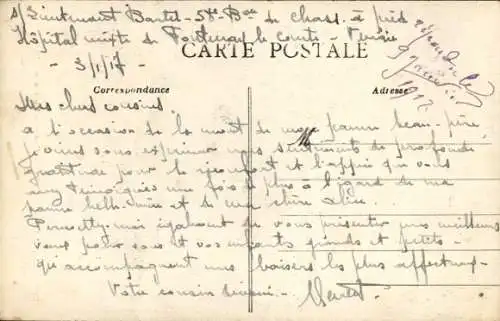 s/Lieutenant Bartet - 5e Bon de Chass. à pied
Hôpital mixte de Fontenay le Comte - Vendée
- 3/1/17 -
CARTE POSTALE
Correspondance
Adresse
Répondu le
9 janvier
1917
Mes chers cousins,
à l'occasion de la mort de mon pauvre beau-père,
je viens vous exprimer nos sentiments de profonde
gratitude pour le réconfort et l'appui que vous
avez témoignés une fois de plus à l'égard de ma
pauvre belle-mère et de ma chère
Permettez-moi également de vous présenter mes meilleurs
voeux pour vous et vos enfants grands et petits -
qu'accompagnent mes baisers les plus affectueux -
Votre cousin
M